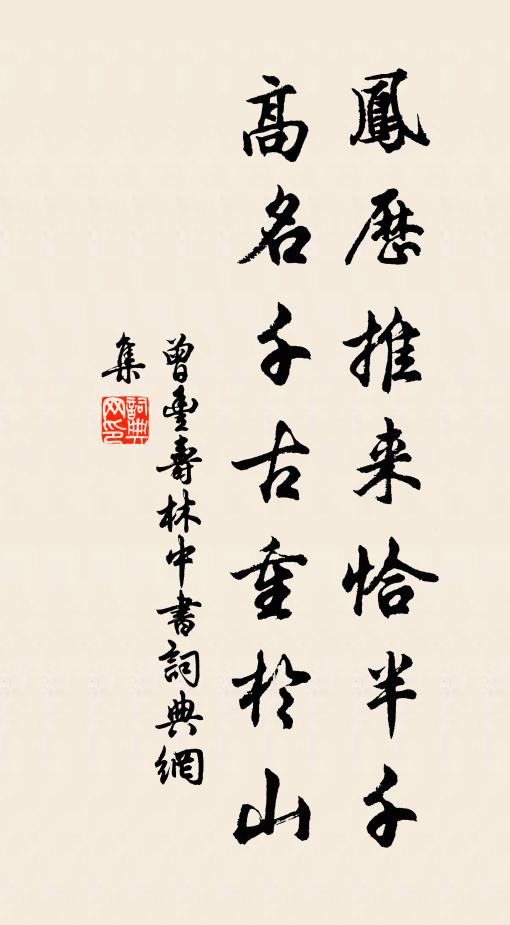 鳳歷推来恰半千
高名千古重於山
曾豐壽林中書詞典網
集
詞典網印